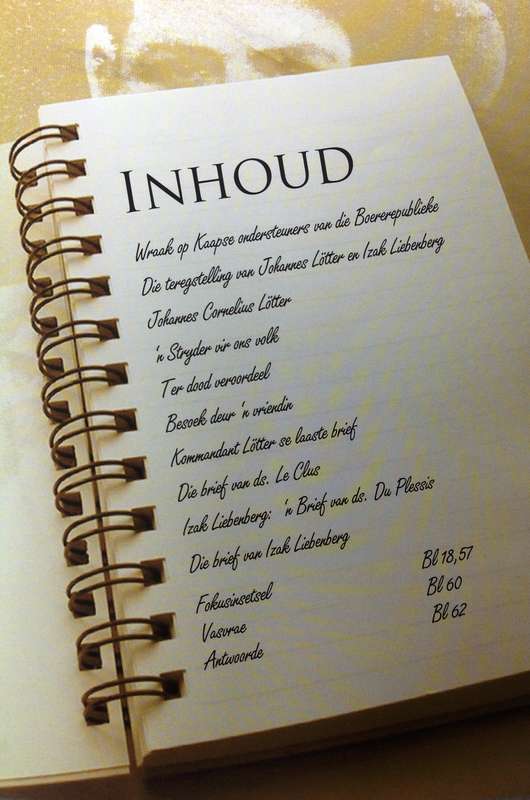 INHOUD
Wraak op Kaapse ondersteuners van die Boererepublieke
Die teregstelling van Johannes Lötter en Izak Liebenberg
Johannes Cornelius Lötter
'n Stryder vir ons volk
Ter dood veroordeel
Besoek deur 'n vriendin
Kommandant Lötter se laaste brief
Die brief van ds. Le Clus
Izak Liebenberg: 'n Brief van ds. Du Plessis
Die brief van Izak Liebenberg
Fokusinsetsel Bl 18,57
Vasvrae Bl 60
Antwoorde Bl 62